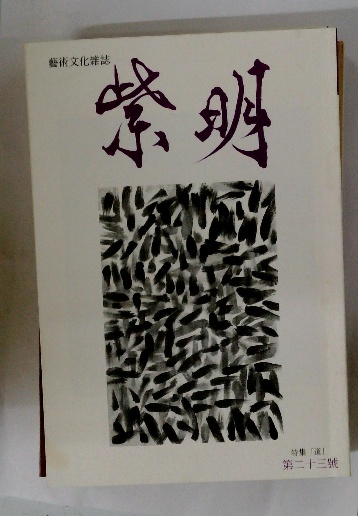 藝術文化雑誌
紫明
特集「道」
第二十三號